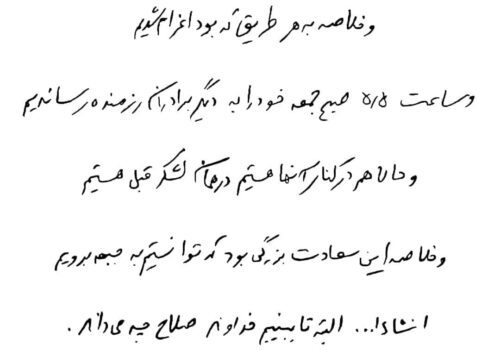 و خلاصه به هر طریق که بود اعزام شدیم
و ساعت ۵/۵ صبح جمعه خود را به دیگر برادران رزمنده رساندیم
و حالا هم در کنار آنها هستیم در همان لشکر قبل هستیم
و خلاصه این سعادت بزرگی بود که توانستیم به جبهه برویم
انشاءا... البته تا ببینیم خداوند صلاح چه می‌داند.